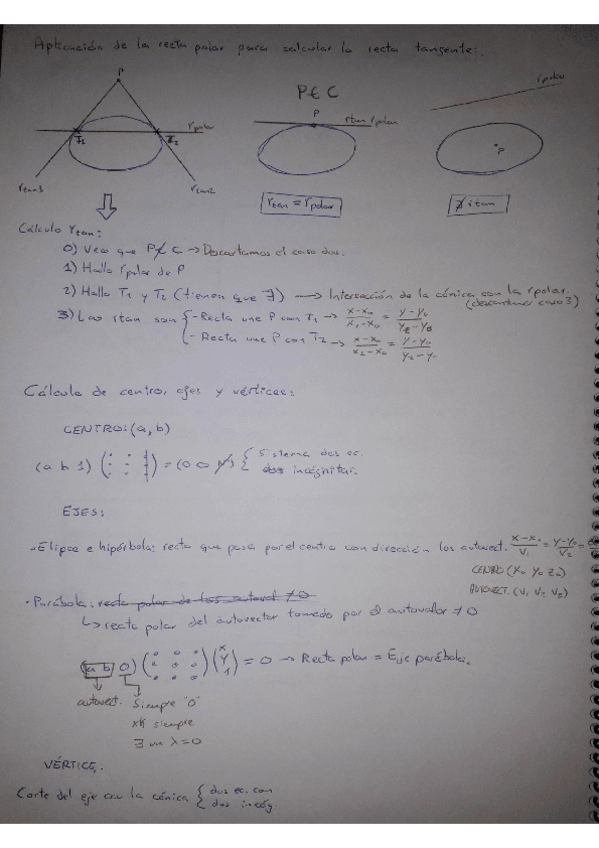 Aplicación de la recta polar para calcular la recta tangente:
P
rpolar
T1
T2
rtan1
rtan2
P ∈ C
P
rtan rpolar
rtan = rpolar
rpolar
P
∄ rtan
Cálculo rtan:
0) Veo que P ∉ C → Descartamos el caso dos.
1) Hallo rpolar de P
2) Hallo T1 y T2 (tienen que ∃) → Intersección de la cónica con la rpolar.
(descartamos caso 3)
3) Las rtan son { - Recta une P con T1 → (x-x0)/(x1-x0) = (y-y0)/(y2-y0)
- Recta une P con T2 → (x-x0)/(x2-x0) = (y-y0)/(y2-y
Cálculo de centro, ejes y vértices:
CENTRO: (a, b)
(a b 1) ( ) = (0 0 { Sistema dos ec.
dos incógnitas.
EJES:
- Elipse e hipérbola: recta que pasa por el centro con dirección los autovect. (x-x0)/V1 = (y-y0)/V2 =
CENTRO (x0 y0 z0)
AUTOVECT. (V1 V2 V3)
- Parábola: recta polar de los autovect ≠ 0
↳ recta polar del autovector tomado por el autovalor ≠ 0
(a b 0) ( ) (x y 1) = 0 → Recta polar = Eje parábola.
autovect. Siempre "0"
xq siempre
∃ un λ=0
VÉRTICE:
Corte del eje con la cónica { dos ec. con
dos incóg.